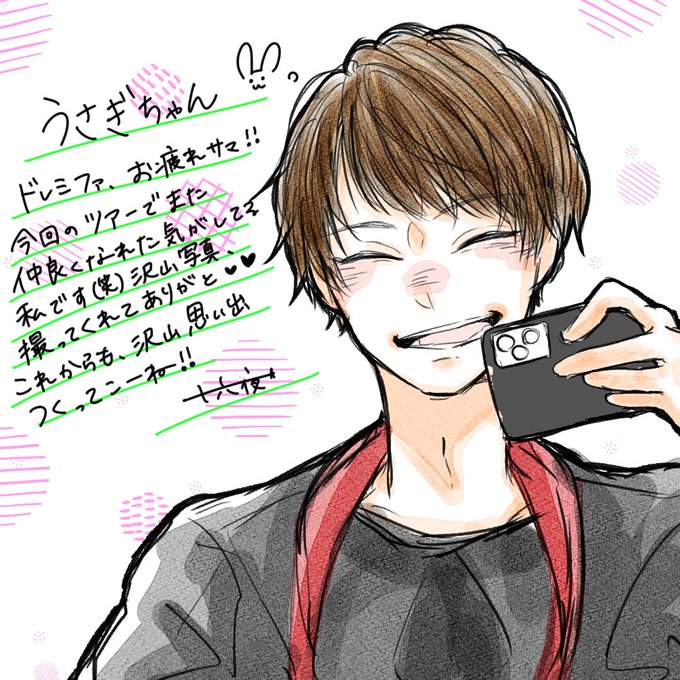 うさぎちゃん
ドレミファ、お疲れサマ!!
今回のツアーでまた
仲良くなれた気がしてる
私です(笑)沢山写真、
撮ってくれてありがと♥♥
これからも、沢山思い出
つくってこーね!!
十六夜